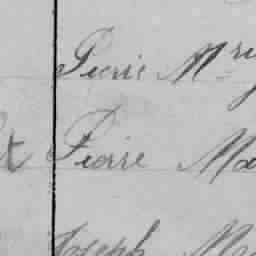 Pierre M
t Pierre Ma
Joseph M